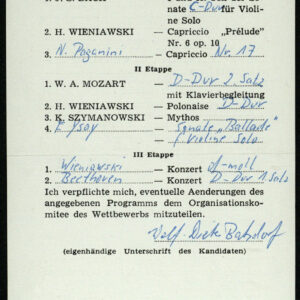 nate C-Dur für Violi-
ne Solo
2. H. WIENIAWSKI — Capriccio „Prélude"
Nr. 6 op. 10
3. N. Paganini — Capriccio Nr. 17
II Etappe
1. W. A. MOZART — D-Dur 2. Satz
mit Klavierbegleitung
2. H. WIENIAWSKI — Polonaise D-Dur
3. K. SZYMANOWSKI — Mythos
4. E. Ysay — Sonate „Ballade"
f. Violine Solo
III Etappe
1. Wieniawski — Konzert d-moll
2. Beethoven — Konzert D-Dur 1. Satz
Ich verpflichte mich, eventuelle Aenderungen des
angegebenen Programms dem Organisationsko-
mitee des Wettbewerbs mitzuteilen.
Wolf-Diete Batzdorf
(eigenhändige Unterschrift des Kandidaten)